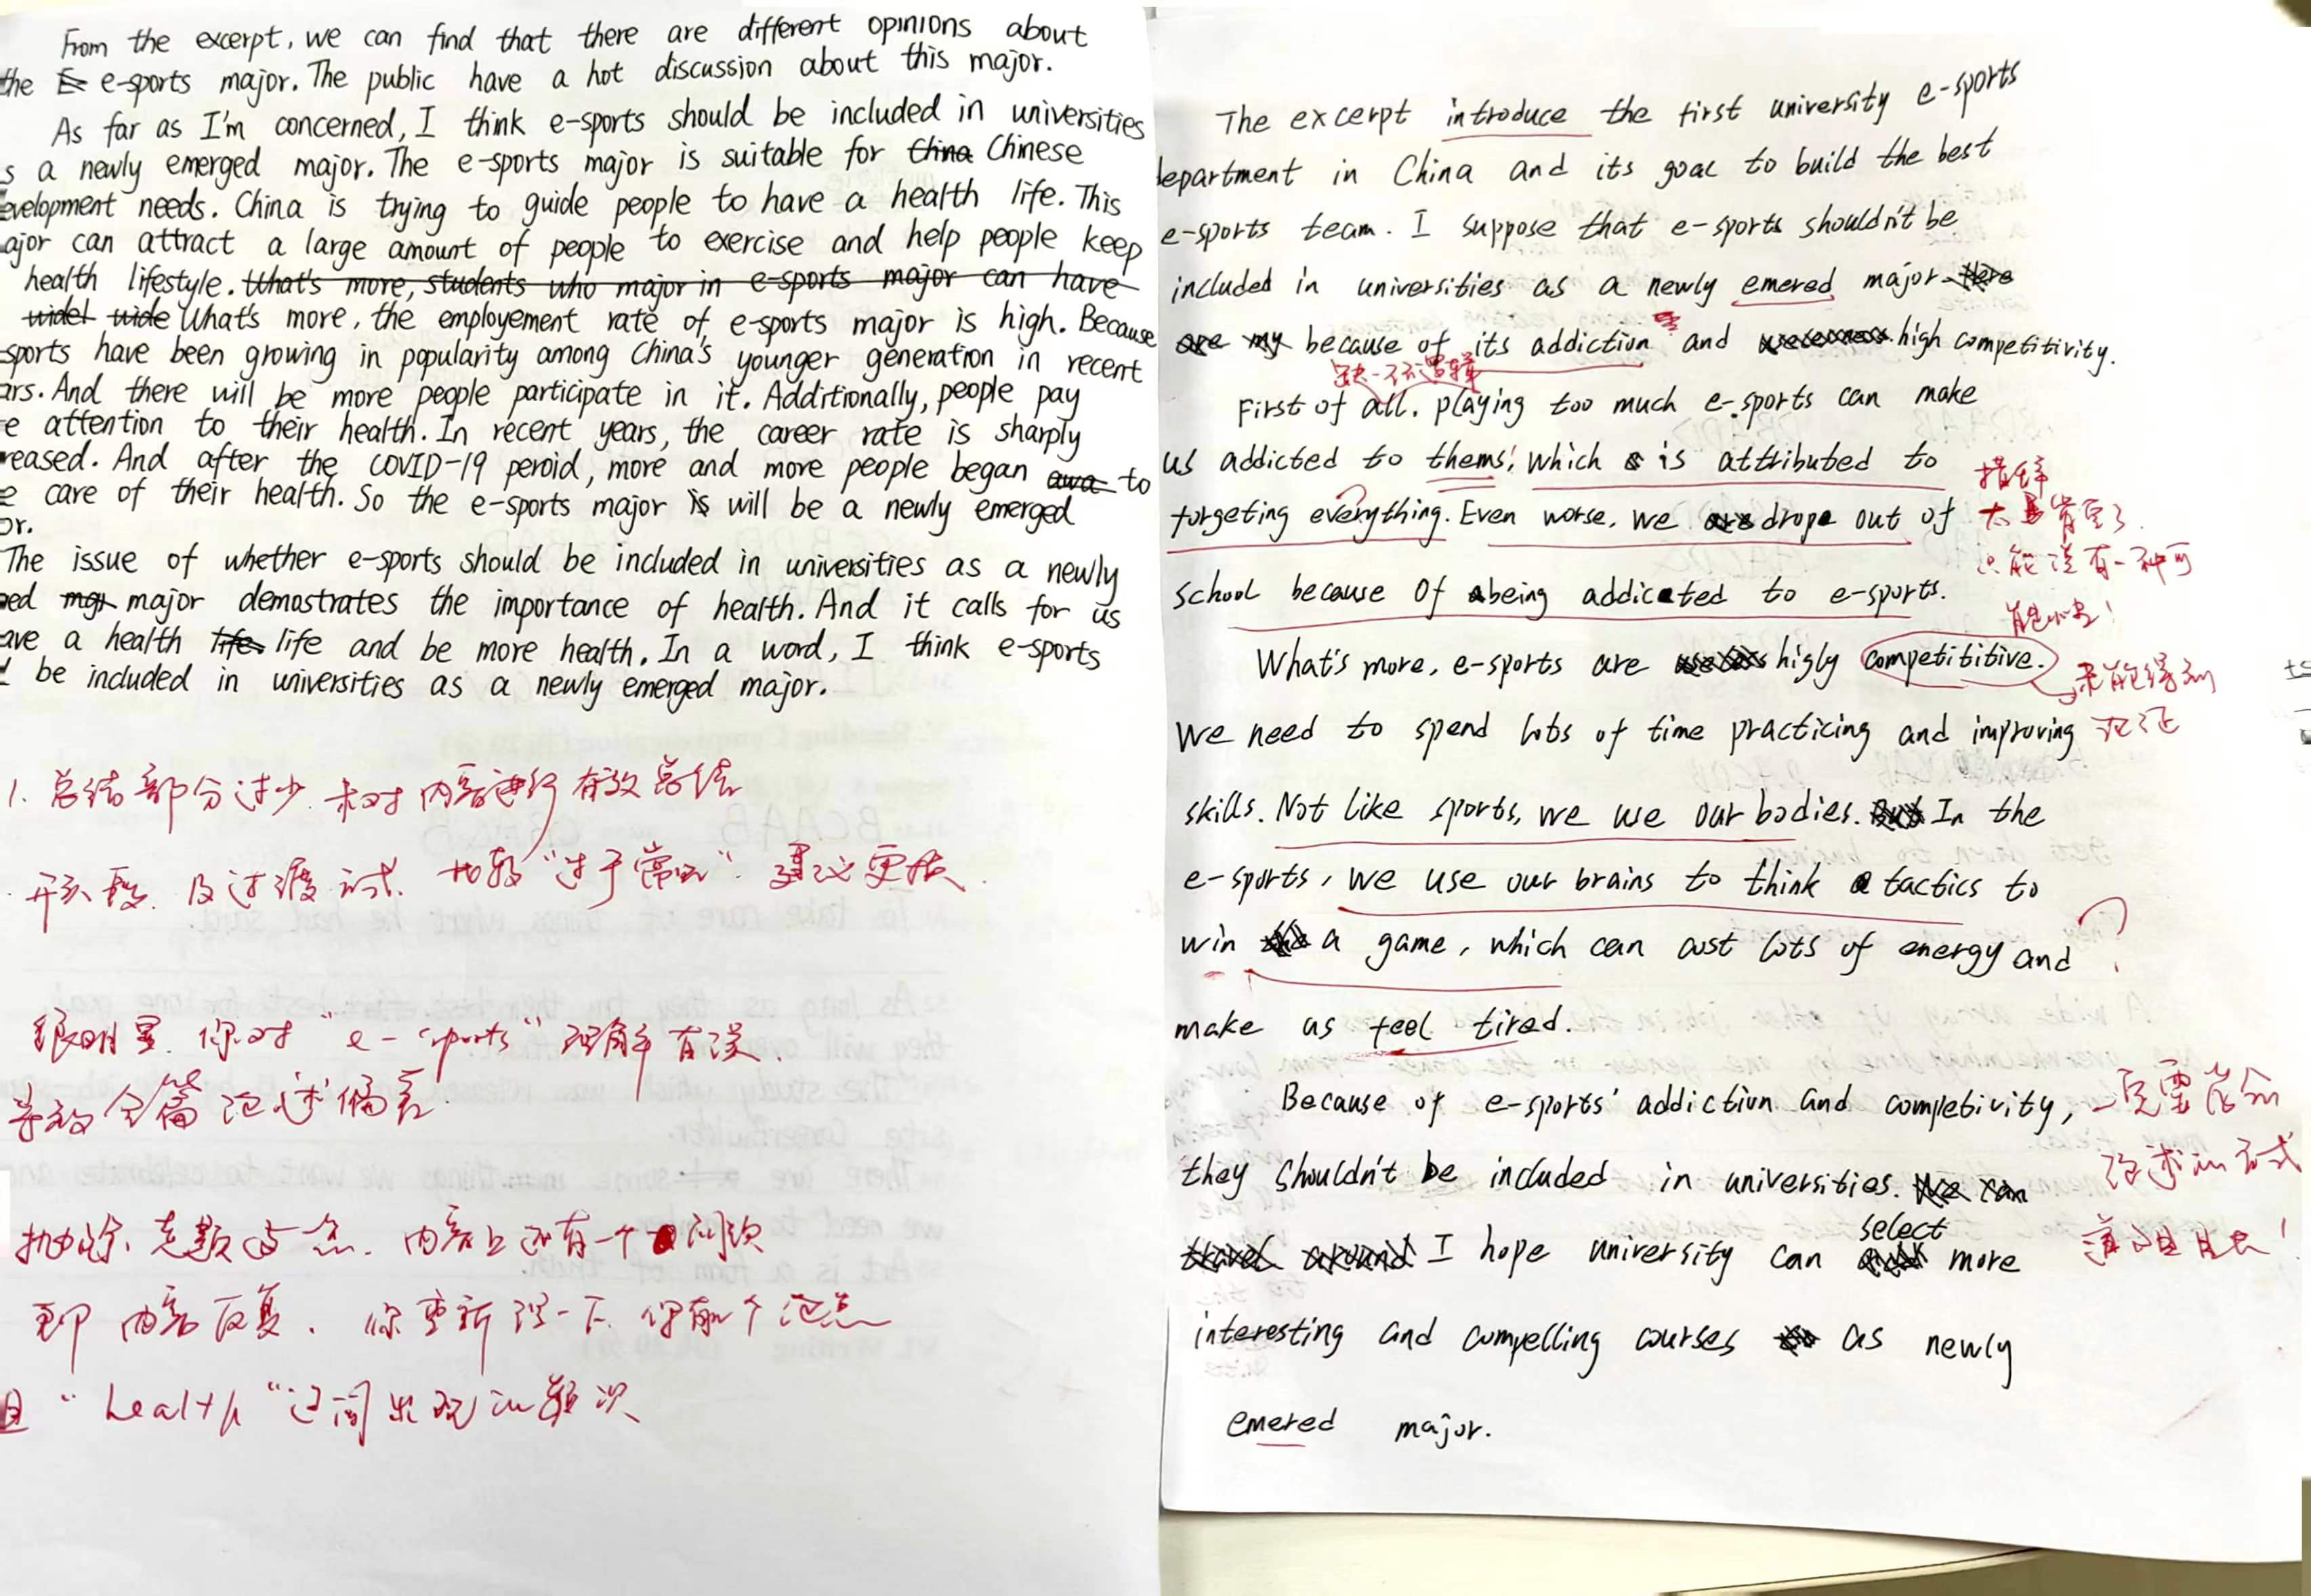 From the excerpt, we can find that there are different opinions about
the e-sports major. The public have a hot discussion about this major.
As far as I'm concerned, I think e-sports should be included in universities
s a newly emerged major. The e-sports major is suitable for China Chinese
evelopment needs. China is trying to guide people to have a health life. This
ajor can attract a large amount of people to exercise and help people keep
health lifestyle. What's more, students who major in e-sports major can have
widel wide What's more, the employement rate of e-sports major is high. Because
sports have been growing in popularity among China's younger generation in recent
ars. And there will be more people participate in it. Additionally, people pay
e attention to their health. In recent years, the career rate is sharply
reased. And after the COVID-19 peroid, more and more people began awa to
e care of their health. So the e-sports major is will be a newly emerged
or.
The issue of whether e-sports should be included in universities as a newly
ed major demostrates the importance of health. And it calls for us
ave a health life life and be more health. In a word, I think e-sports
be included in universities as a newly emerged major.
1. 总结部分过少 未对内容进行有效总结
开头段 及过渡词式 比较“过于常规” 建议更换
很明显 你对“e-sports”理解有误
导致全篇论述偏离
抛弃 内容上还有一个问题
即内容反复 你重新理一下 你有几个论点
且“health”词出现的频次
The excerpt introduce the first university e-sports
department in China and its goal to build the best
e-sports team. I suppose that e-sports shouldn't be
included in universities as a newly emered major Here
are my because of its addiction and high competitivity.
缺一不逻辑
First of all, playing too much e-sports can make
us addicted to thems, which is attributed to
forgeting everything. Even worse, we are drope out of
措辞
太肯定了
只能说有一种可
能性!
school because of being addicated to e-sports.
What's more, e-sports are higly competititive.
未能得到
论证
We need to spend lots of time practicing and improving
skills. Not like sports, we use our bodies. But In the
e-sports, we use our brains to think tactics to
win the a game, which can cost lots of energy and
make us feel tired.
Because of e-sports' addiction and competivity,
they shouldn't be included in universities. We can
一定要
论述的方式
travel around I hope university can select more
interesting and compelling courses as newly
emered major.